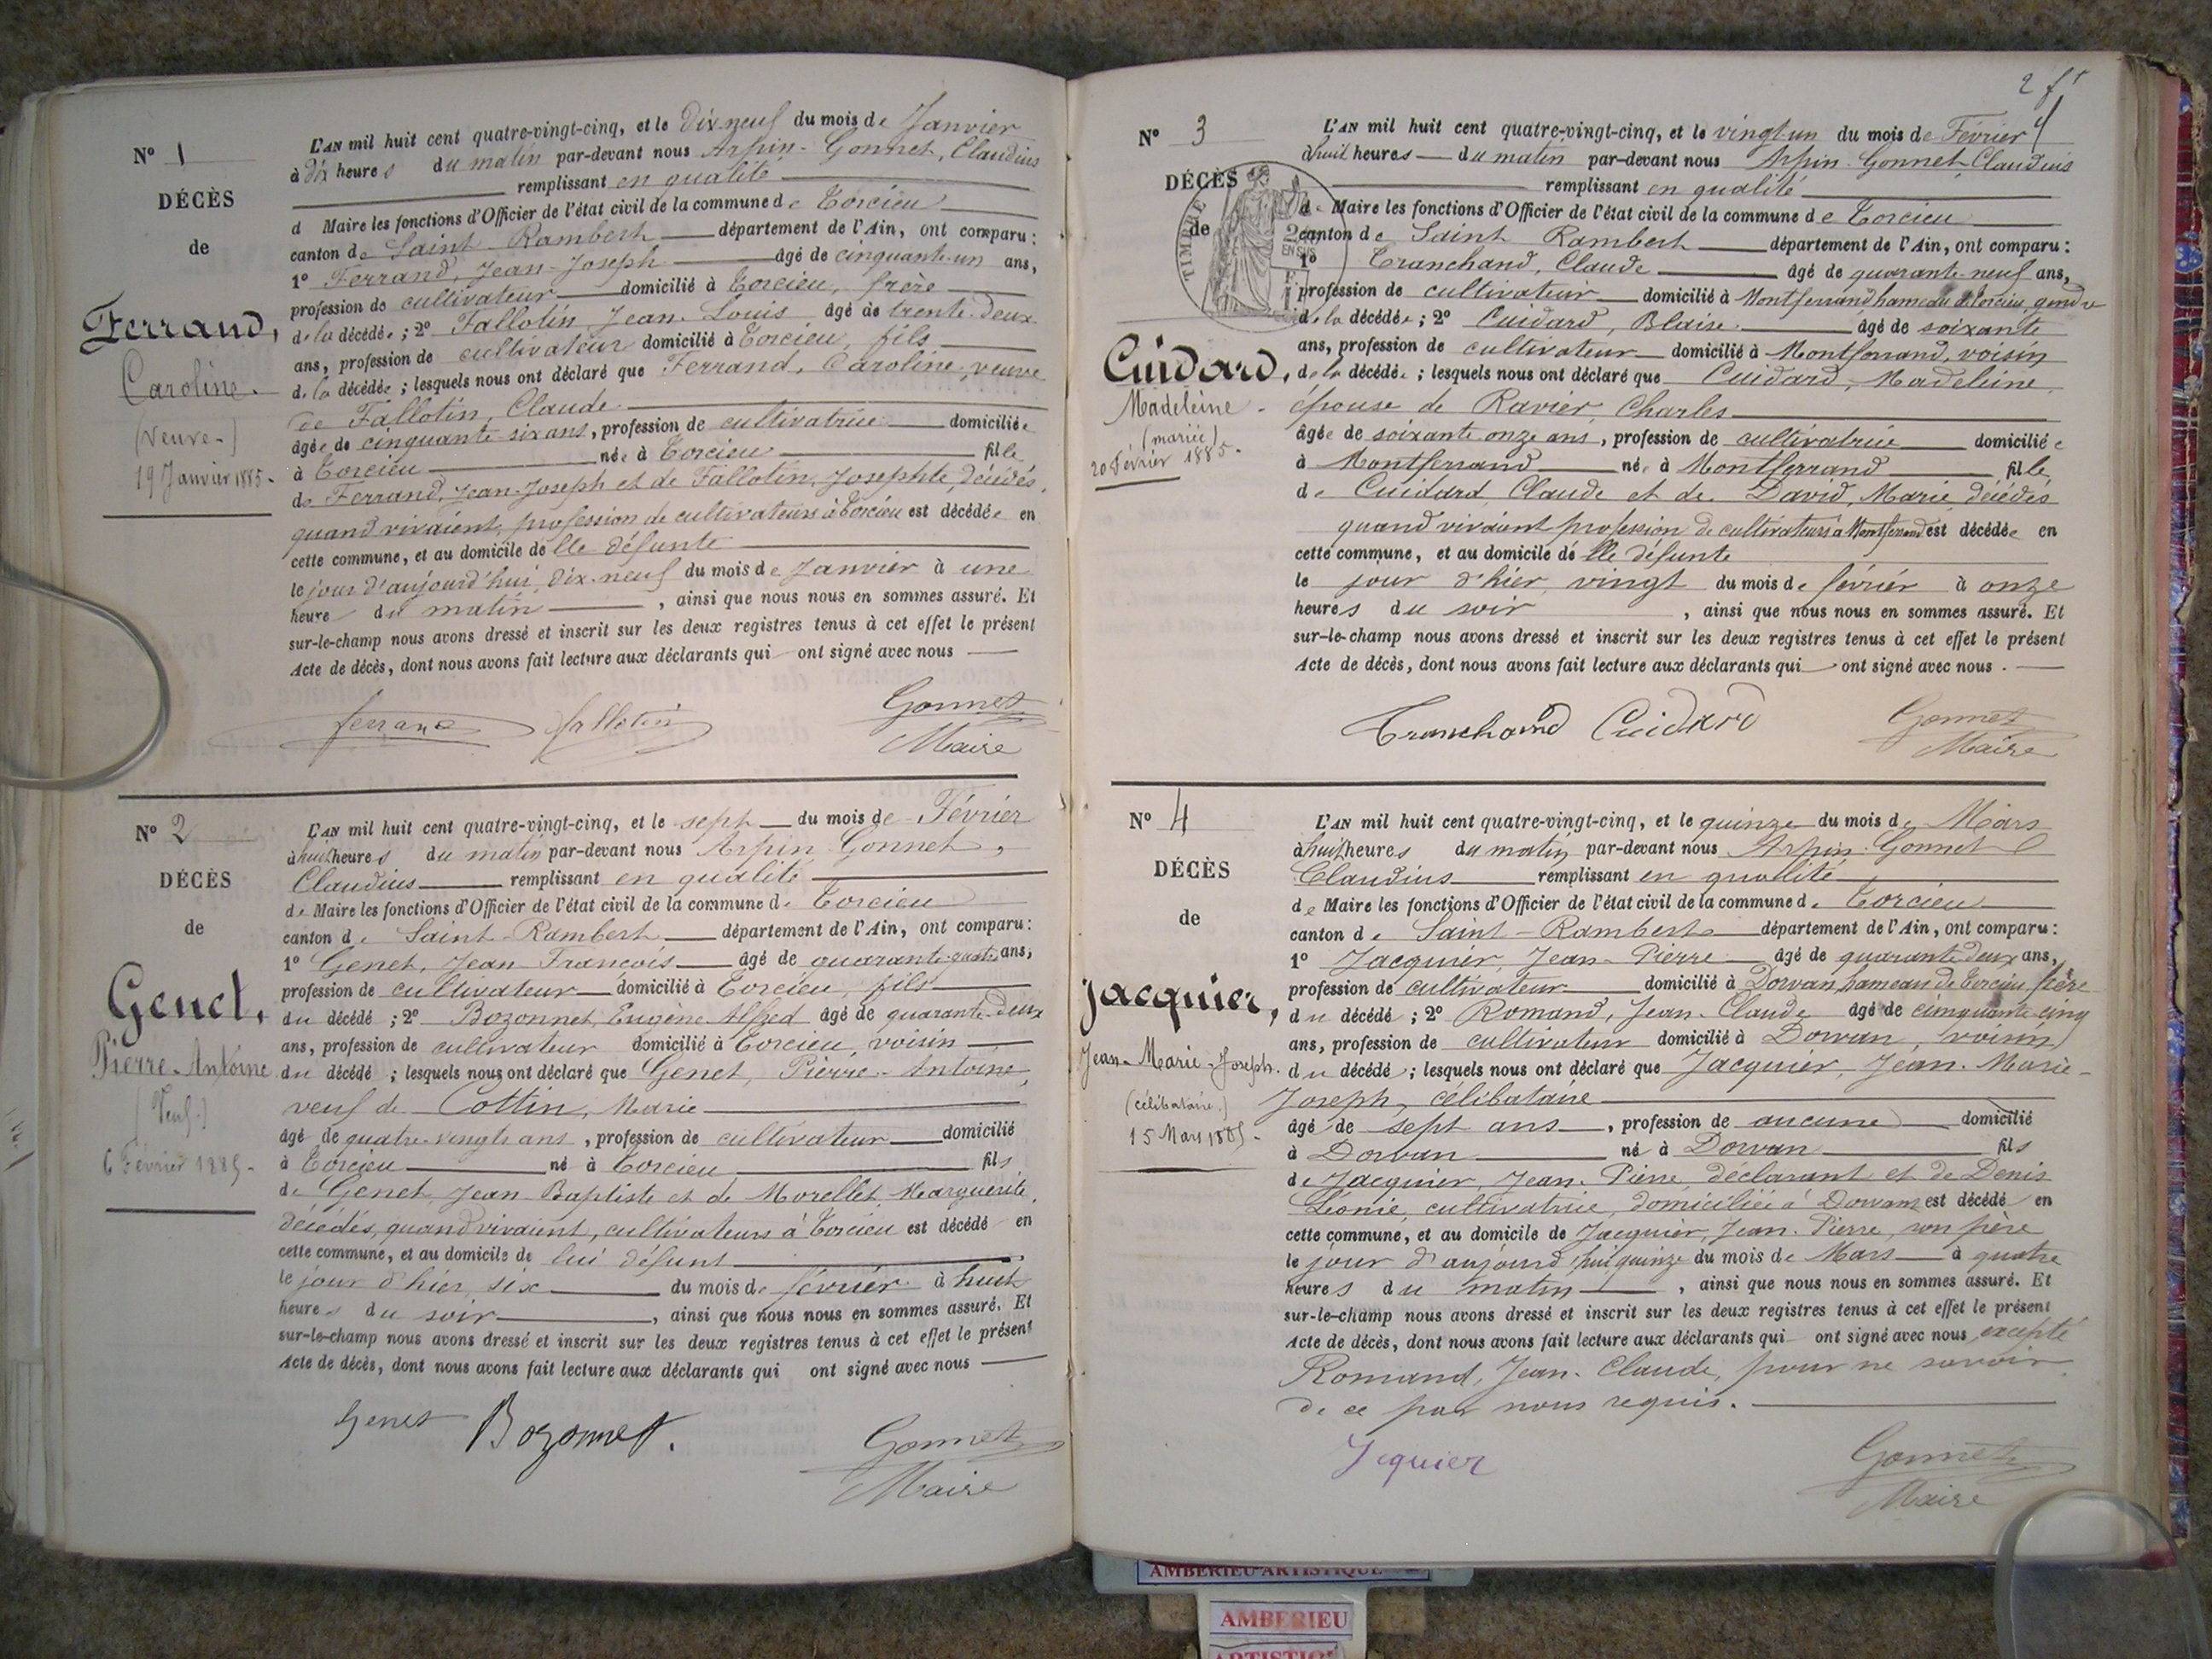 N° 1
DÉCÈS
de
Ferrand,
Caroline.
(veuve)
19 Janvier 1885.
L'AN mil huit cent quatre-vingt-cinq, et le dix-neuf du mois de Janvier
à dix heures du matin par-devant nous Arpin-Gonnet, Claudius
remplissant en qualité
d Maire les fonctions d'Officier de l'état civil de la commune de Torcieu
canton de Saint-Rambert département de l'Ain, ont comparu :
1° Ferrand, Jean-Joseph âgé de cinquante-un ans,
profession de cultivateur domicilié à Torcieu, frère
de la décédée ; 2° Fallotin, Jean-Louis âgé de trente-deux
ans, profession de cultivateur domicilié à Torcieu, fils
de la décédée ; lesquels nous ont déclaré que Ferrand, Caroline, veuve
de Fallotin, Claude
âgée de cinquante-six ans, profession de cultivatrice domiciliée
à Torcieu née à Torcieu fille
de Ferrand, Jean-Joseph et de Fallotin, Josephte, décédés,
quand vivaient, profession de cultivateurs à Torcieu est décédée en
cette commune, et au domicile de lle défunte
le jour d'aujourd'hui dix-neuf du mois de Janvier à une
heure du matin , ainsi que nous nous en sommes assuré. Et
sur-le-champ nous avons dressé et inscrit sur les deux registres tenus à cet effet le présent
Acte de décès, dont nous avons fait lecture aux déclarants qui ont signé avec nous
ferrand fallotin Gonnet
Maire
N° 2
DÉCÈS
de
Genet,
Pierre-Antoine
(Veuf)
6 Février 1885.
L'AN mil huit cent quatre-vingt-cinq, et le sept du mois de Février
à huit heures du matin par-devant nous Arpin-Gonnet,
Claudius remplissant en qualité
de Maire les fonctions d'Officier de l'état civil de la commune de Torcieu
canton de Saint-Rambert département de l'Ain, ont comparu :
1° Genet, Jean François âgé de quarante-quatre ans,
profession de cultivateur domicilié à Torcieu, fils
du décédé ; 2° Bozonnet, Eugène Alfred âgé de quarante-deux
ans, profession de cultivateur domicilié à Torcieu, voisin
du décédé ; lesquels nous ont déclaré que Genet, Pierre-Antoine,
veuf de Cottin, Marie
âgé de quatre-vingts ans, profession de cultivateur domicilié
à Torcieu né à Torcieu fils
de Genet, Jean Baptiste et de Morellet, Marguerite,
décédés, quand vivaient, cultivateurs à Torcieu est décédé en
cette commune, et au domicile de lui défunt
le jour d'hier, six du mois de février à huit
heures du soir , ainsi que nous nous en sommes assuré. Et
sur-le-champ nous avons dressé et inscrit sur les deux registres tenus à cet effet le présent
Acte de décès, dont nous avons fait lecture aux déclarants qui ont signé avec nous
Genet Bozonnet. Gonnet
Maire
2 ft
N° 3
DÉCÈS
de
TIMBRE
2
EN SUS
Cuidard,
Madeleine.
(mariée)
20 Février 1885.
L'AN mil huit cent quatre-vingt-cinq, et le vingt-un du mois de Février
à huit heures du matin par-devant nous Arpin-Gonnet, Claudius
remplissant en qualité
de Maire les fonctions d'Officier de l'état civil de la commune de Torcieu
canton de Saint Rambert département de l'Ain, ont comparu :
1° Tranchand, Claude âgé de quarante-neuf ans,
profession de cultivateur domicilié à Montferrand hameau de Torcieu, gendre
de la décédée ; 2° Cuidard, Blaise âgé de soixante
ans, profession de cultivateur domicilié à Montferrand, voisin
de la décédée ; lesquels nous ont déclaré que Cuidard, Madeleine,
épouse de Ravier, Charles
âgée de soixante-onze ans, profession de cultivatrice domiciliée
à Montferrand née à Montferrand fille
de Cuidard, Claude et de David, Marie, décédés
quand vivaient profession de cultivateurs à Montferrand est décédée en
cette commune, et au domicile de lle défunte
le jour d'hier, vingt du mois de février à onze
heures du soir , ainsi que nous nous en sommes assuré. Et
sur-le-champ nous avons dressé et inscrit sur les deux registres tenus à cet effet le présent
Acte de décès, dont nous avons fait lecture aux déclarants qui ont signé avec nous.
Tranchand Cuidard Gonnet
Maire
N° 4
DÉCÈS
de
Jacquier,
Jean-Marie-Joseph.
(célibataire.)
15 Mars 1885.
L'AN mil huit cent quatre-vingt-cinq, et le quinze du mois de Mars
à huit heures du matin par-devant nous Arpin-Gonnet
Claudius remplissant en qualité
de Maire les fonctions d'Officier de l'état civil de la commune de Torcieu
canton de Saint-Rambert département de l'Ain, ont comparu :
1° Jacquier, Jean-Pierre âgé de quarante-deux ans,
profession de cultivateur domicilié à Dorvan, hameau de Torcieu, père
du décédé ; 2° Romand, Jean-Claude âgé de cinquante-cinq
ans, profession de cultivateur domicilié à Dorvan, voisin
du décédé ; lesquels nous ont déclaré que Jacquier, Jean-Marie-
Joseph, célibataire
âgé de sept ans , profession de aucune domicilié
à Dorvan né à Dorvan fils
de Jacquier, Jean-Pierre, déclarant et de Denis
Léonie, cultivatrice, domiciliée à Dorvan est décédé en
cette commune, et au domicile de Jacquier, Jean-Pierre, son père
le jour d'aujourd'hui quinze du mois de Mars à quatre
heures du matin , ainsi que nous nous en sommes assuré. Et
sur-le-champ nous avons dressé et inscrit sur les deux registres tenus à cet effet le présent
Acte de décès, dont nous avons fait lecture aux déclarants qui ont signé avec nous excepté
Romand, Jean-Claude, pour ne savoir
de ce par nous requis.
Jequier Gonnet
Maire
AMBERIEU-ARTISTIQUE
AMBERIEU
ARTISTIQUE